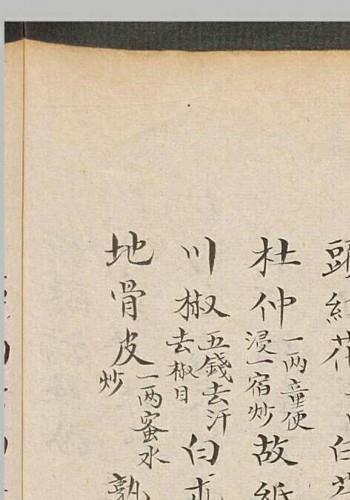 頭紅花
杜仲一两童便浸一宿炒故紙
川椒五錢去汗去椒目白朮
地骨皮一两蜜水炒熟